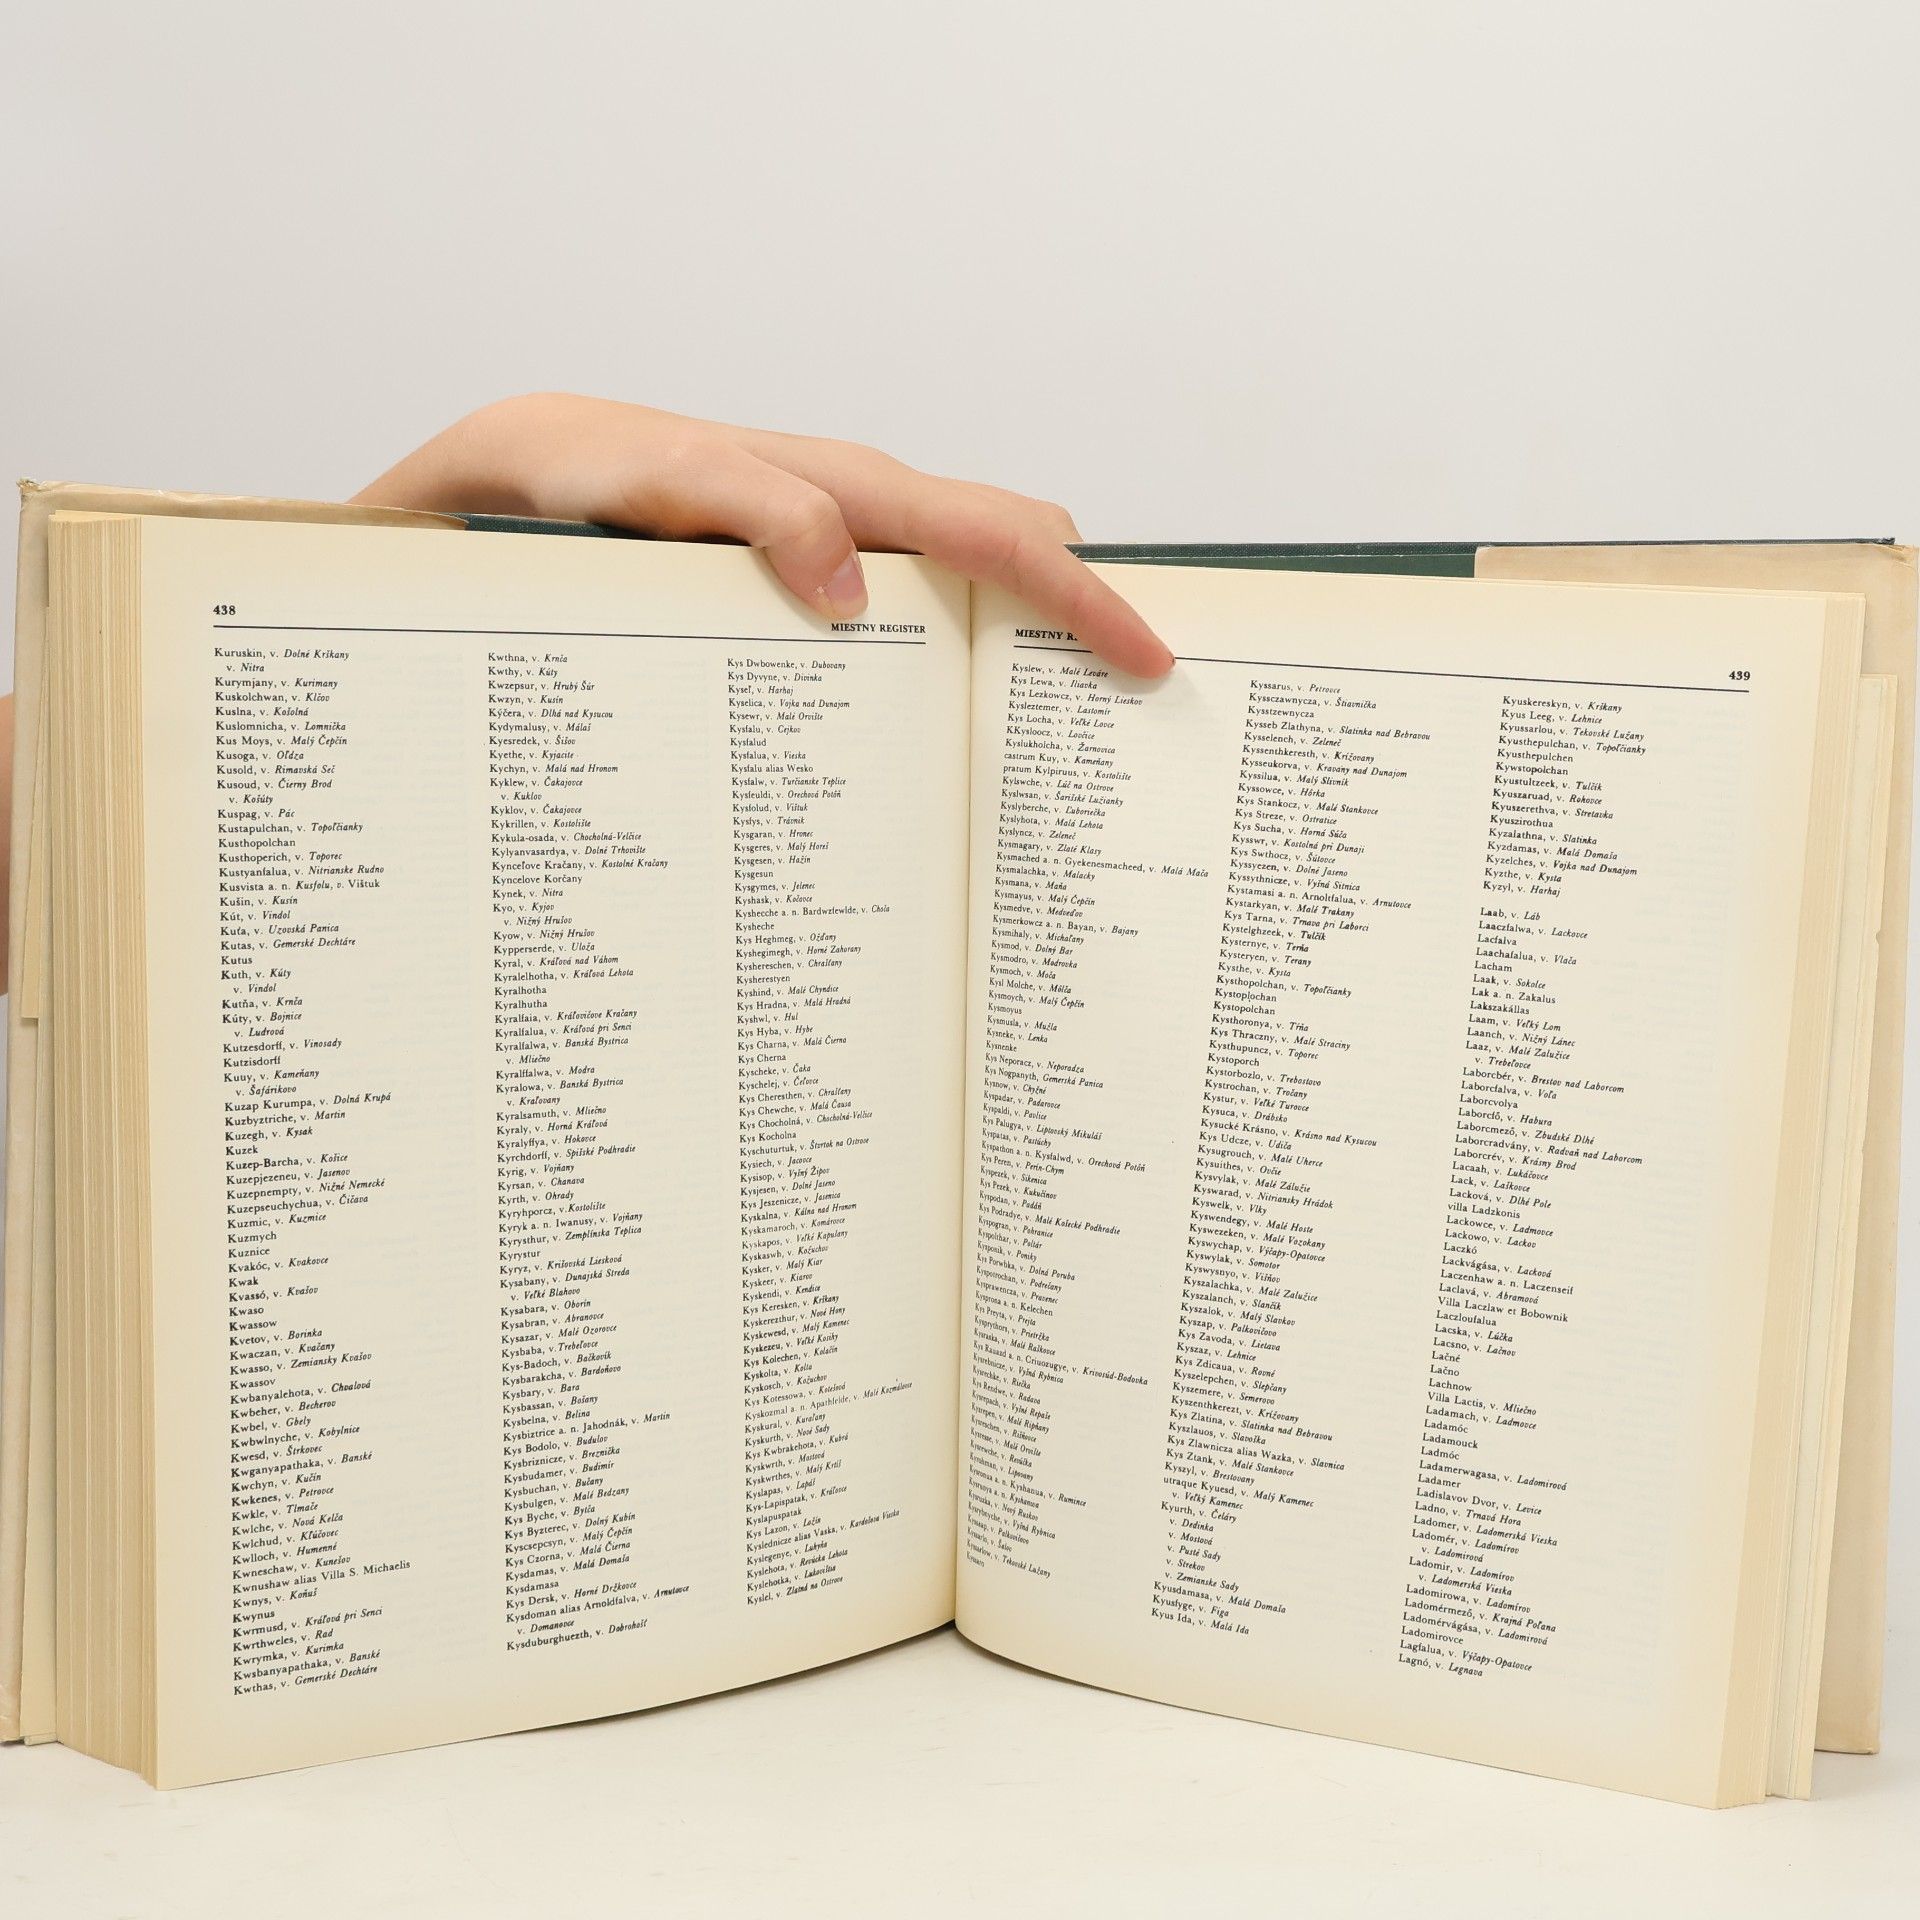 438
MIESTNY REGISTER
Kuruskin, v. Dolné Krškany
v. Nitra
Kurymjany, v. Kurimany
Kuskolchwan, v. Klčov
Kuslna, v. Košolná
Kuslomnicha, v. Lomnička
Kus Moys, v. Malý Čepčín
Kusoga, v. Oľdza
Kusold, v. Rimavská Seč
Kusoud, v. Čierny Brod
v. Košúty
Kuspag, v. Pác
Kustapulchan, v. Topoľčianky
Kusthopolchan
Kusthoperich, v. Toporec
Kustyanfalua, v. Nitrianske Rudno
Kusvista a. n. Kusfolu, v. Vištuk
Kušin, v. Kusín
Kút, v. Vindol
Kuťa, v. Uzovská Panica
Kutas, v. Gemerské Dechtáre
Kutus
Kuth, v. Kúty
v. Vindol
Kutňa, v. Krnča
Kúty, v. Bojnice
v. Ludrová
Kutzesdorff, v. Vinosady
Kutzisdorff
Kuuy, v. Kameňany
v. Šafárikovo
Kuzap Kurumpa, v. Dolná Krupá
Kuzbyztriche, v. Martin
Kuzegh, v. Kysak
Kuzek
Kuzep-Barcha, v. Košice
Kuzepjezeneu, v. Jasenov
Kuzepnempty, v. Nižné Nemecké
Kuzepseuchychua, v. Čičava
Kuzmic, v. Kuzmice
Kuzmych
Kuznice
Kvakóc, v. Kvakovce
Kwak
Kvassó, v. Kvašov
Kwaso
Kwassow
Kvetov, v. Borinka
Kwaczan, v. Kvačany
Kwasso, v. Zemiansky Kvašov
Kwassov
Kwbanyalehota, v. Chvalová
Kwbeher, v. Becherov
Kwbel, v. Gbely
Kwbwlnyche, v. Kobylnice
Kwesd, v. Štrkovec
Kwganyapathaka, v. Banské
Kwchyn, v. Kučín
Kwkenes, v. Petrovce
Kwkle, v. Tlmače
Kwlche, v. Nová Kelča
Kwlchud, v. Kľúčovec
Kwlloch, v. Humenné
Kwneschaw, v. Kunešov
Kwnushaw alias Villa S. Michaelis
Kwnys, v. Koňuš
Kwynus
Kwrmusd, v. Kráľová pri Senci
Kwrthweles, v. Rad
Kwrymka, v. Kurimka
Kwsbanyapathaka, v. Banské
Kwthas, v. Gemerské Dechtáre
Kwthna, v. Krnča
Kwthy, v. Kúty
Kwzepsur, v. Hrubý Šúr
Kwzyn, v. Kusín
Kýčera, v. Dlhá nad Kysucou
Kydymalusy, v. Málaš
Kyesredek, v. Šišov
Kyethe, v. Kyjacite
Kychyn, v. Malá nad Hronom
Kyklew, v. Čakajovce
v. Kuklov
Kyklov, v. Čakajovce
Kykrillen, v. Kostolište
Kykula-osada, v. Chocholná-Velčice
Kylyanvasardya, v. Dolné Trhovište
Kynceľove Kračany, v. Kostolné Kračany
Kyncelove Korčany
Kynek, v. Nitra
Kyo, v. Kyjov
v. Nižný Hrušov
Kyow, v. Nižný Hrušov
Kypperserde, v. Uloža
Kyral, v. Kráľová nad Váhom
Kyralelhotha, v. Kráľová Lehota
Kyralhotha
Kyralhutha
Kyralfaia, v. Kráľovičove Kračany
Kyralfalua, v. Kráľová pri Senci
Kyralfalwa, v. Banská Bystrica
v. Mliečno
Kyralffalwa, v. Modra
Kyralowa, v. Banská Bystrica
v. Kraľovany
Kyralsamuth, v. Mliečno
Kyraly, v. Horná Kráľová
Kyralyffya, v. Hokovce
Kyrchdorff, v. Spišské Podhradie
Kyrig, v. Vojňany
Kyrsan, v. Chanava
Kyrth, v. Ohrady
Kyryhporcz, v. Kostolište
Kyryk a. n. Iwanusy, v. Vojňany
Kyrysthur, v. Zemplínska Teplica
Kyrystur
Kyryz, v. Krišovská Liesková
Kysabany, v. Dunajská Streda
v. Veľké Blahovo
Kysabara, v. Oborín
Kysabran, v. Abranovce
Kysazar, v. Malé Ozorovce
Kysbaba, v. Trebeľovce
Kys-Badoch, v. Bačkovík
Kysbarakcha, v. Bardoňovo
Kysbary, v. Bara
Kysbassan, v. Bošany
Kysbelna, v. Belina
Kysbiztrice a. n. Jahodnák, v. Martin
Kys Bodolo, v. Budulov
Kysbriznicze, v. Breznička
Kysbudamer, v. Budimír
Kysbuchan, v. Bučany
Kysbulgen, v. Malé Bedzany
Kys Byche, v. Bytča
Kys Byzterec, v. Dolný Kubín
Kyscsepcsyn, v. Malý Čepčín
Kys Czorna, v. Malá Čierna
Kysdamas, v. Malá Domaša
Kysdamasa
Kys Dersk, v. Horné Držkovce
Kysdoman alias Arnoldfalva, v. Arnutovce
v. Domanovce
Kysduburghuezth, v. Dobrohošť
Kys Dwbowenke, v. Dubovany
Kys Dyvyne, v. Divinka
Kyseľ, v. Harhaj
Kyselica, v. Vojka nad Dunajom
Kysewr, v. Malé Orvište
Kysfalu, v. Cejkov
Kysfalud
Kysfalua, v. Vieska
Kysfalu alias Wesko
Kysfalw, v. Turčianske Teplice
Kysfeuldi, v. Orechová Potôň
Kysfolud, v. Vištuk
Kysfys, v. Trávnik
Kysgaran, v. Hronec
Kysgeres, v. Malý Horeš
Kysgesen, v. Hažín
Kysgesun
Kysgymes, v. Jelenec
Kyshask, v. Košovce
Kyshecche a. n. Bardwzfewlde, v. Choľa
Kysheche
Kys Heghmeg, v. Ožďany
Kyshegimegh, v. Horné Zahorany
Kyshereschen, v. Chrašťany
Kysherestyen
Kyshind, v. Malé Chyndice
Kys Hradna, v. Malá Hradná
Kyshwl, v. Hul
Kys Hyba, v. Hybe
Kys Charna, v. Malá Čierna
Kys Cherna
Kyscheke, v. Čaka
Kyschelej, v. Čeľovce
Kys Cheresthen, v. Chrašťany
Kys Chewche, v. Malá Čausa
Kys Chocholná, v. Chocholná-Velčice
Kys Kocholna
Kyschuturtuk, v. Štvrtok na Ostrove
Kysiech, v. Jacovce
Kysisop, v. Vyšný Žipov
Kysjesen, v. Dolné Jaseno
Kys Jeszenicze, v. Jasenica
Kyskalna, v. Kálna nad Hronom
Kyskamaroch, v. Komárovce
Kyskapos, v. Veľké Kapušany
Kyskaswh, v. Kožuchov
Kysker, v. Malý Kiar
Kyskeer, v. Kiarov
Kyskendi, v. Kendice
Kys Keresken, v. Krškany
Kyskerezthur, v. Nové Hony
Kyskewesd, v. Malý Kamenec
Kyskezeu, v. Veľké Kosihy
Kys Kolechen, v. Kolačín
Kyskolta, v. Kolta
Kyskosch, v. Kožuchov
Kys Kotessowa, v. Kotešová
Kyskozmal a. n. Apathfelde, v. Malé Kozmálovce
Kyskural, v. Kuraľany
Kyskurth, v. Nové Sady
Kys Kwbrakehota, v. Kubrá
Kyskwrth, v. Mostová
Kyskwrthes, v. Malý Krtíš
Kyslapas, v. Lapáš
Kys-Lapispatak, v. Kráľovce
Kyslapuspatak
Kys Lazon, v. Ložín
Kyslednicze alias Vaska, v. Kardošova Vieska
Kyslegenye, v. Luhyňa
Kyslehota, v. Revúcka Lehota
Kyslehotka, v. Lukovištia
Kyslel, v. Zlatná na Ostrove
MIESTNY R
439
Kyslew, v. Malé Leváre
Kys Lewa, v. Iliavka
Kys Lezkowcz, v. Horný Lieskov
Kysleztemer, v. Lastomír
Kys Locha, v. Veľké Lovce
KKysloocz, v. Lovčice
Kyslukholcha, v. Žarnovica
castrum Kuy, v. Kameňany
pratum Kylpiruus, v. Kostolište
Kylswche, v. Lúč na Ostrove
Kyslwsan, v. Šarišské Lužianky
Kyslyberche, v. Ľuboriečka
Kyslyhota, v. Malá Lehota
Kyslyncz, v. Zeleneč
Kysmagary, v. Zlaté Klasy
Kysmached a. n. Gyekenesmacheed, v. Malá Mača
Kysmalachka, v. Malacky
Kysmana, v. Maňa
Kysmayus, v. Malý Čepčín
Kysmedve, v. Medveďov
Kysmerkowcz a. n. Bayan, v. Bajany
Kysmihaly, v. Michaľany
Kysmod, v. Dolný Bar
Kysmodro, v. Modrovka
Kysmoch, v. Moča
Kysl Molche, v. Môlča
Kysmoych, v. Malý Čepčín
Kysmoyus
Kysmusla, v. Mužla
Kysneke, v. Lenka
Kysnenke
Kys Neporacz, v. Neporadza
Kys Nogpanyth, Gemerská Panica
Kysnow, v. Chyžné
Kyspadar, v. Padarovce
Kyspaldi, v. Pavlice
Kys Palugya, v. Liptovský Mikuláš
Kyspatas, v. Pastúchy
Kyspathon a. n. Kysfalwd, v. Orechová Potôň
Kys Peren, v. Perín-Chym
Kyspezek, v. Sikenica
Kys Pezek, v. Kukučínov
Kyspodan, v. Padáň
Kys Podradye, v. Malé Košecké Podhradie
Kyspogran, v. Pohranice
Kyspolthar, v. Poltár
Kysponik, v. Poniky
Kys Porwbka, v. Dolná Poruba
Kyspotrochan, v. Podrečany
Kysprawencza, v. Pravenec
Kysprona a. n. Kelechen
Kys Preyta, v. Prejta
Kysprythors, v. Prietržka
Kysraska, v. Malé Raškovce
Kys Rauazd a. n. Criuozugye, v. Krivosúd-Bodovka
Kysrebnicze, v. Vyšná Rybnica
Kysrechke, v. Riečka
Kys Rendwe, v. Radava
Kysrepach, v. Vyšné Repaše
Kysrepen, v. Malé Ripňany
Kysreschen, v. Riškovce
Kysresse, v. Malé Orvište
Kysrewche, v. Revúčka
Kysruzka, v. Nový Ruskov
Kysrybnyche, v. Vyšná Rybnica
Kyssarlow, v. Tekovské Lužany
Kyssarus, v. Petrovce
Kyssczawnycza, v. Štiavnička
Kysstzewnycza
Kysseb Zlathyna, v. Slatinka nad Bebravou
Kysselench, v. Zeleneč
Kyssenthkeresth, v. Krížovany
Kysseukorva, v. Kravany nad Dunajom
Kyssilua, v. Malý Slivník
Kyssowce, v. Hôrka
Kys Stankocz, v. Malé Stankovce
Kys Streze, v. Ostratice
Kys Sucha, v. Horná Súča
Kysswr, v. Kostolná pri Dunaji
Kys Swthocz, v. Šútovce
Kyssyezen, v. Dolné Jaseno
Kyssythnicze, v. Vyšná Sitnica
Kystamasi a. n. Arnoltfalua, v. Arnutovce
Kystarkyan, v. Malé Trakany
Kys Tarna, v. Trnava pri Laborci
Kystelghzeek, v. Tulčík
Kysternye, v. Terňa
Kysteryen, v. Terany
Kysthe, v. Kysta
Kysthopolchan, v. Topoľčianky
Kystoplochan
Kystopolchan
Kysthoronya, v. Tŕňa
Kys Thraczny, v. Malé Straciny
Kysthupuncz, v. Toporec
Kystoporch
Kystorbozlo, v. Trebostovo
Kystrochan, v. Tročany
Kystur, v. Veľké Turovce
Kysuca, v. Drábsko
Kysucké Krásno, v. Krásno nad Kysucou
Kys Udcze, v. Udiča
Kysugrouch, v. Malé Uherce
Kysuithes, v. Ovčie
Kysvylak, v. Malé Zálužie
Kyswarad, v. Nitriansky Hrádok
Kyswelk, v. Vlky
Kyswendegy, v. Malé Hoste
Kyswezeken, v. Malé Vozokany
Kyswychap, v. Výčapy-Opatovce
Kyswylak, v. Somotor
Kyswysnyo, v. Višňov
Kyszalachka, v. Malé Zalužice
Kyszalanch, v. Slančík
Kyszalok, v. Malý Slavkov
Kyszap, v. Palkovičovo
Kys Zavoda, v. Lietava
Kyszaz, v. Lehnice
Kys Zdicaua, v. Rovné
Kyszelepchen, v. Slepčany
Kyszemere, v. Semerovo
Kyszenthkerezt, v. Krížovany
Kys Zlatina, v. Slatinka nad Bebravou
Kyszlauos, v. Slavoška
Kys Zlawnicza alias Wazka, v. Slavnica
Kys Ztank, v. Malé Stankovce
Kyszyl, v. Brestovany
utraque Kyuesd, v. Malý Kamenec
v. Veľký Kamenec
Kyurth, v. Čeláry
v. Dedinka
v. Mostová
v. Pusté Sady
v. Strekov
v. Zemianske Sady
Kyusdamasa, v. Malá Domaša
Kyusfyge, v. Figa
Kyus Ida, v. Malá Ida
Kyuskereskyn, v. Krškany
Kyus Leeg, v. Lehnice
Kyussarlou, v. Tekovské Lužany
Kyusthepulchan, v. Topoľčianky
Kyusthepulchen
Kywstopolchan
Kyustultzeek, v. Tulčík
Kyuszaruad, v. Rohovce
Kyuszerethva, v. Stretavka
Kyuszirothua
Kyzalathna, v. Slatinka
Kyzdamas, v. Malá Domaša
Kyzelches, v. Vojka nad Dunajom
Kyzthe, v. Kysta
Kyzyl, v. Harhaj
Laab, v. Láb
Laaczfalwa, v. Lackovce
Lacfalva
Laachafalua, v. Vlača
Lacham
Laak, v. Sokolce
Lak a. n. Zakalus
Lakszakállas
Laam, v. Veľký Lom
Laanch, v. Nižný Lánec
Laaz, v. Malé Zalužice
v. Trebeľovce
Laborcbér, v. Brestov nad Laborcom
Laborcfalva, v. Voľa
Laborcvolya
Laborcfő, v. Habura
Laborcmező, v. Zbudské Dlhé
Laborcradvány, v. Radvaň nad Laborcom
Laborcrév, v. Krásny Brod
Lacaah, v. Lukáčovce
Lack, v. Laškovce
Lacková, v. Dlhé Pole
villa Ladzkonis
Lackowce, v. Ladmovce
Lackowo, v. Lackov
Laczkó
Lackvágása, v. Lacková
Laczenhaw a. n. Laczenseif
Laclavá, v. Abramová
Villa Laczlaw et Bobownik
Laczloufalua
Lacska, v. Lúčka
Lacsno, v. Lačnov
Lačné
Lačno
Lachnow
Villa Lactis, v. Mliečno
Ladamach, v. Ladmovce
Ladamóc
Ladamouck
Ladmóc
Ladamerwagasa, v. Ladomirová
Ladamer
Ladislavov Dvor, v. Levice
Ladno, v. Trnavá Hora
Ladomer, v. Ladomerská Vieska
Ladomér, v. Ladomírov
v. Ladomirová
Ladomir, v. Ladomírov
v. Ladomerská Vieska
Ladomirowa, v. Ladomírov
Ladomérmező, v. Krajná Poľana
Ladomérvágása, v. Ladomirová
Ladomirovce
Lagfalua, v. Výčapy-Opatovce
Lagnó, v. Legnava